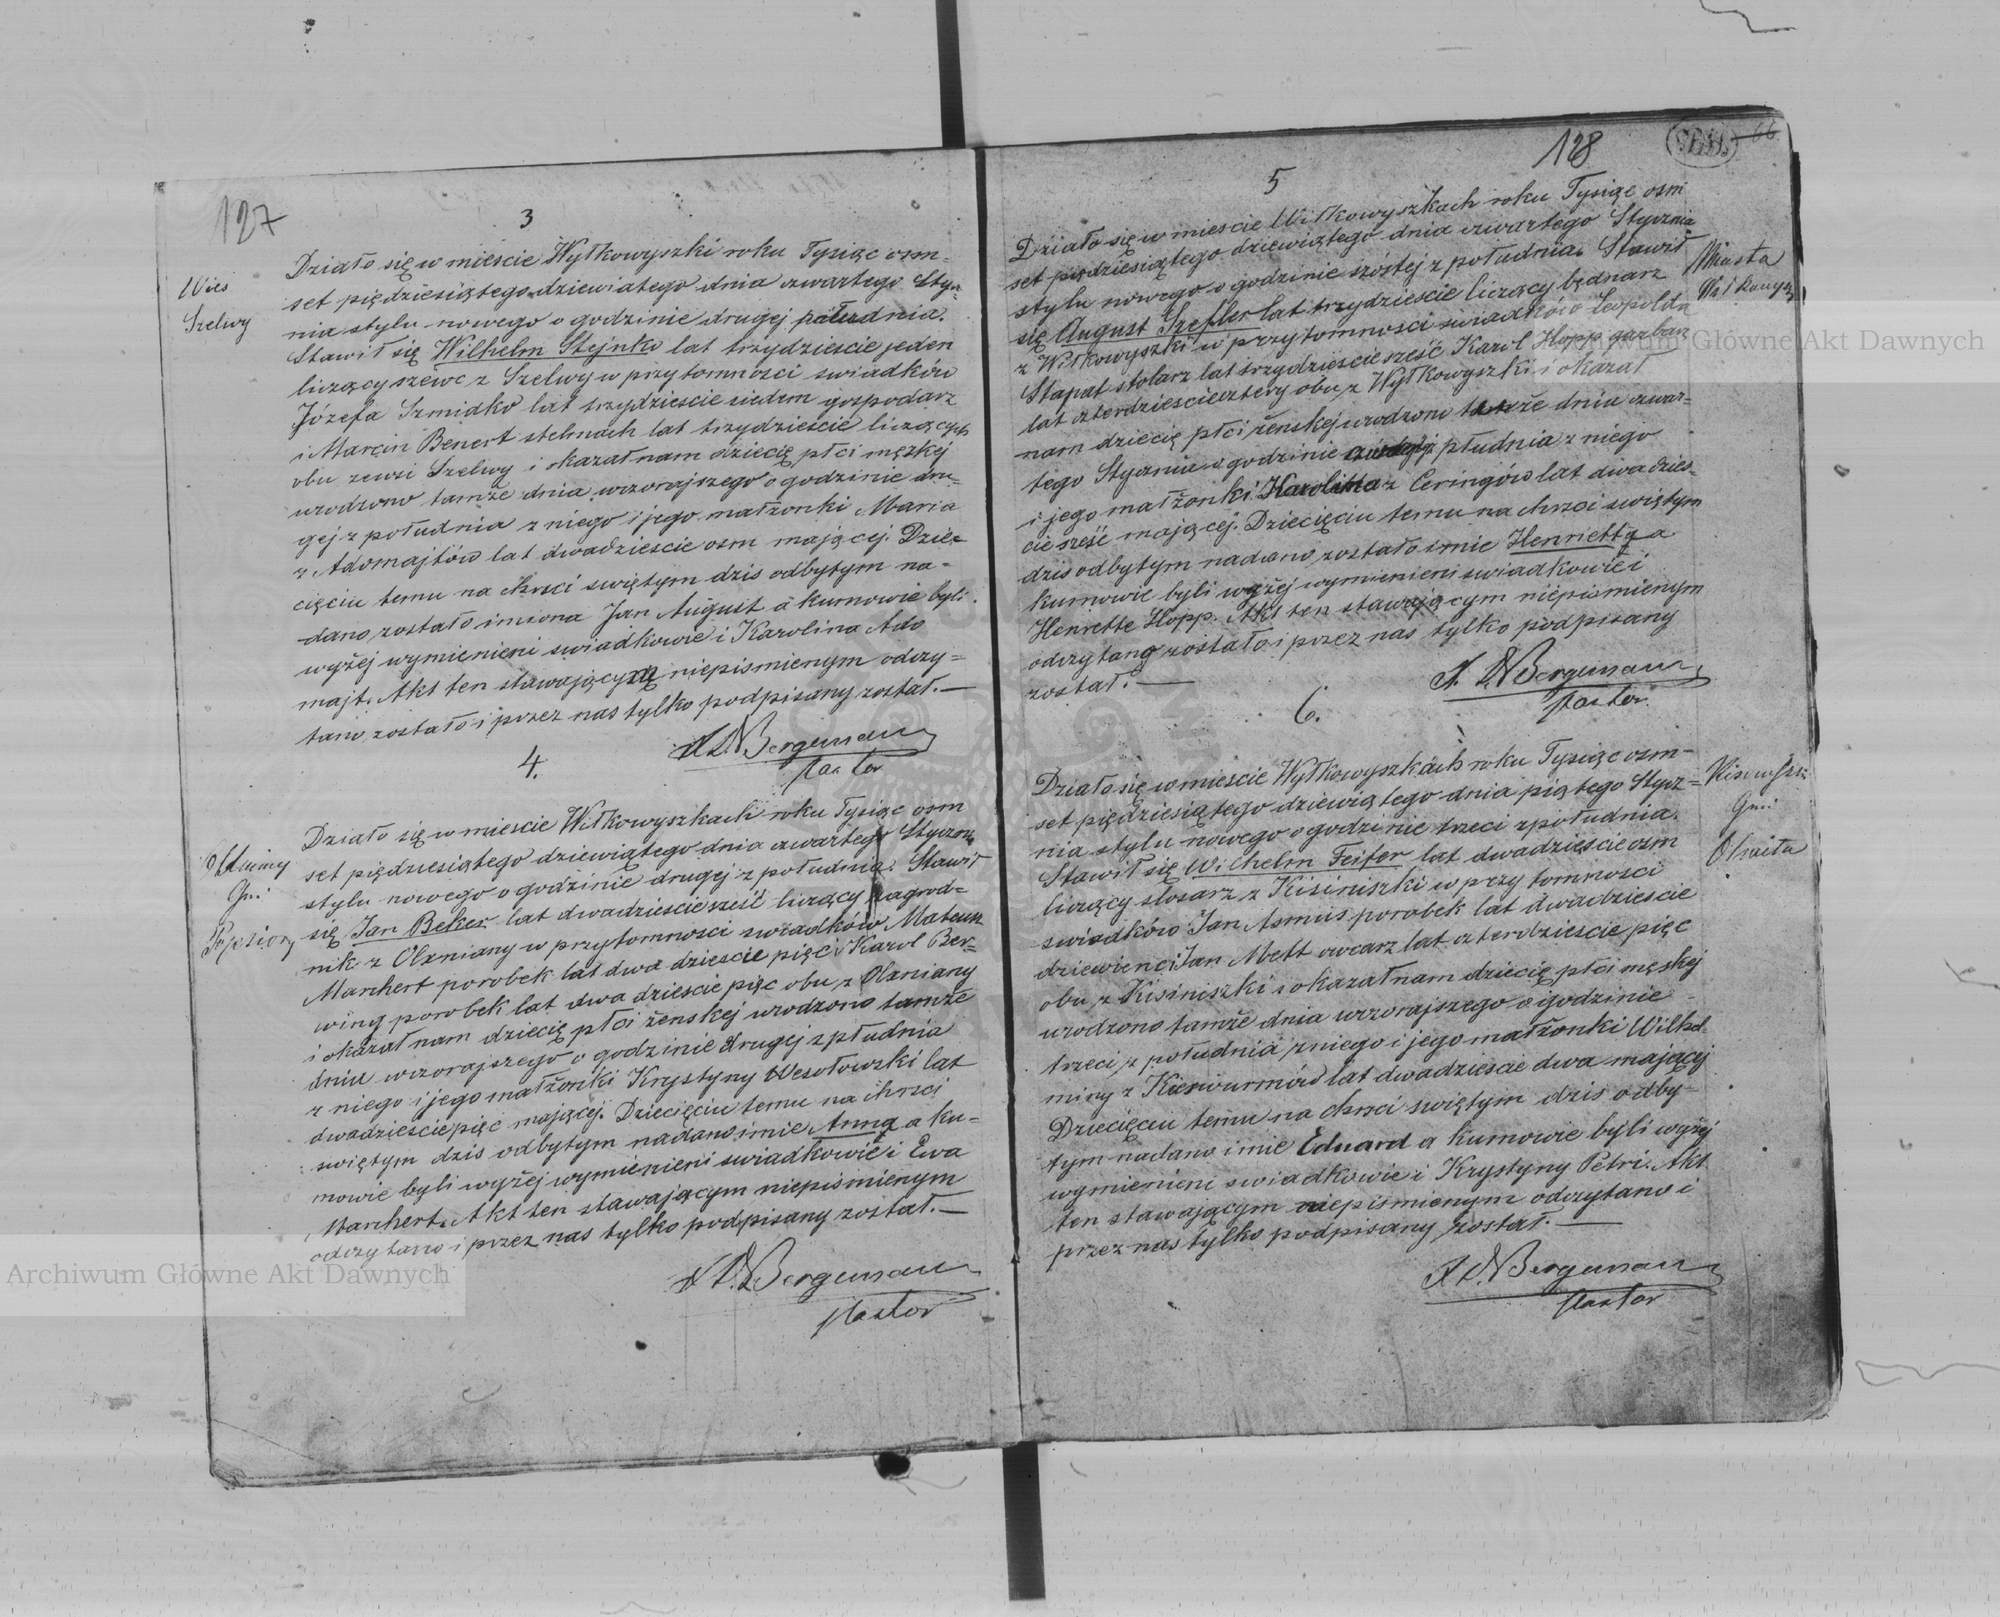 127
3
Wieś
Szelwy
Działo się w mieście Wyłkowyszki roku Tysiąc osm-
set piędziesiątego dziewiatego dnia czwartego Sty-
nia stylu nowego o godzinie drugej południa.
Stawił się Wilhelm Stejnko lat trzydzieście jeden
liczący szewc z Szelwy w przytomności swiadków
Józefa Szmidko lat trzydzieście siedm gospodarz
i Marcin Benert stelmach lat trzydzieście liczących
obu zewsi Szelwy i okazał nam dziecię płci męzkej
urodzono tamże dnia wczorajszego o godzinie dru-
gej z południa z niego i jego małżonki Maria
z Adomajtów lat dwadzieście osm mającej. Dzie-
cięciu temu na chrzci swiętym dzis odbytym na-
dano zostało imiona Jan August a kumowie byli
wyżej wymienieni swiadkowie i Karolina Ado
majt. Akt ten stawający niepismienym odczy-
tano zostało i przez nas tylko podpisany został.—
Bergemann
Pastor
4.
Gm:
Działo się w mieście Wiłkowyszkach roku Tysiąc osm
set piędziesiątego dziewiątego dnia czwartego Stycznia
stylu nowego o godzinie drugej z południa. Stawił
się Jan Beker lat dwadzieście sześć liczący zagrod-
nik z Olxniany w przytomności swiadków Mateusz
Marchert porobek lat dwa dzieście pięć i Karol Ber-
wing porobek lat dwa dzieście pięc obu z Olxniany
i okazał nam dziecię płci żenskej urodzono tamże
dniu wczorajszego o godzinie drugej z płudnia
z niego i jego małżonki Krystyny Wesołowski lat
dwadzieście pięc mającej. Dziecięciu temu na chrzci
swiętym dzis odbytym nadano imie Anna a ku-
mowie byli wyżej wymienieni swiadkowie i Ewa
Marchert. Akt ten stawającym niepismienym
odczytano i przez nas tylko podpisany został.—
Bergemann
Pastor
128
66
5
Miasta
Działo się w mieście Wiłkowyszkach roku Tysiąc osm
set piędziesiątego dziewiątego dnia czwartego Stycznia
stylu nowego o godzinie szóstej z południa. Stawił
się August Szefler lat trzydzieście liczący bednarz
z Wiłkowyszki w przytomności swiadków Leopolda
Stapat stolarz lat trzydzieście sześć Karol Hopp garbarz
lat czterdzieście cztery obu z Wyłkowyszki i okazał
nam dziecię płci żenskej urodzono tamże dnia czwar-
tego Stycznia o godzinie płudnia z niego
i jego małżonki Karolina z Ceringów lat dwadzieś-
cie sześć mającej. Dziecięciu temu na chrzci swiętym
dzis odbytym nadano zostało imie Henrietta a
kumowie byli wyżej wymienieni swiadkowie i
Henrette Hopp. Akt ten stawającym niepismienym
odczytano zostało i przez nas tylko podpisany
został.—
Bergemann
Pastor.
6.
Gm:
Działo się w mieście Wyłkowyszkach roku Tysiąc osm-
set pięzdiesiątego dziewiątego dnia piątego Stycz-
nia stylu nowego o godzinie trzeci z południa.
Stawił się Wilchelm Feifer lat dwadzieście osm
liczący slosarz z Kisiniszki w przytomności
swiadków Jan Asmus porobek lat dwadzieście
dziewienc i Jan Mett owczarz lat czterdzieście pięc
obu z Kisiniszki i okazał nam dziecię płci męskej
urodzono tamże dnia wczorajszego o godzinie
trzeci z południa z niego i jego małżonki Wilhel
miny z Kierwurmów lat dwadzieście dwa mającej
Dziecięciu temu na chrzci swiętym dzis odby-
tym nadano imie Eduard a kumowie byli wyżej
wymienieni swiadkowie i Krystyny Petri. Akt
ten stawającym niepismienym odczytano i
przez nas tylko podpisany został.—
Bergemann
Pastor
Archiwum Główne Akt Dawnych
Archiwum Główne Akt Dawnych